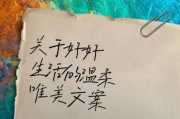 关于好好
生活的温柔
唯美文案